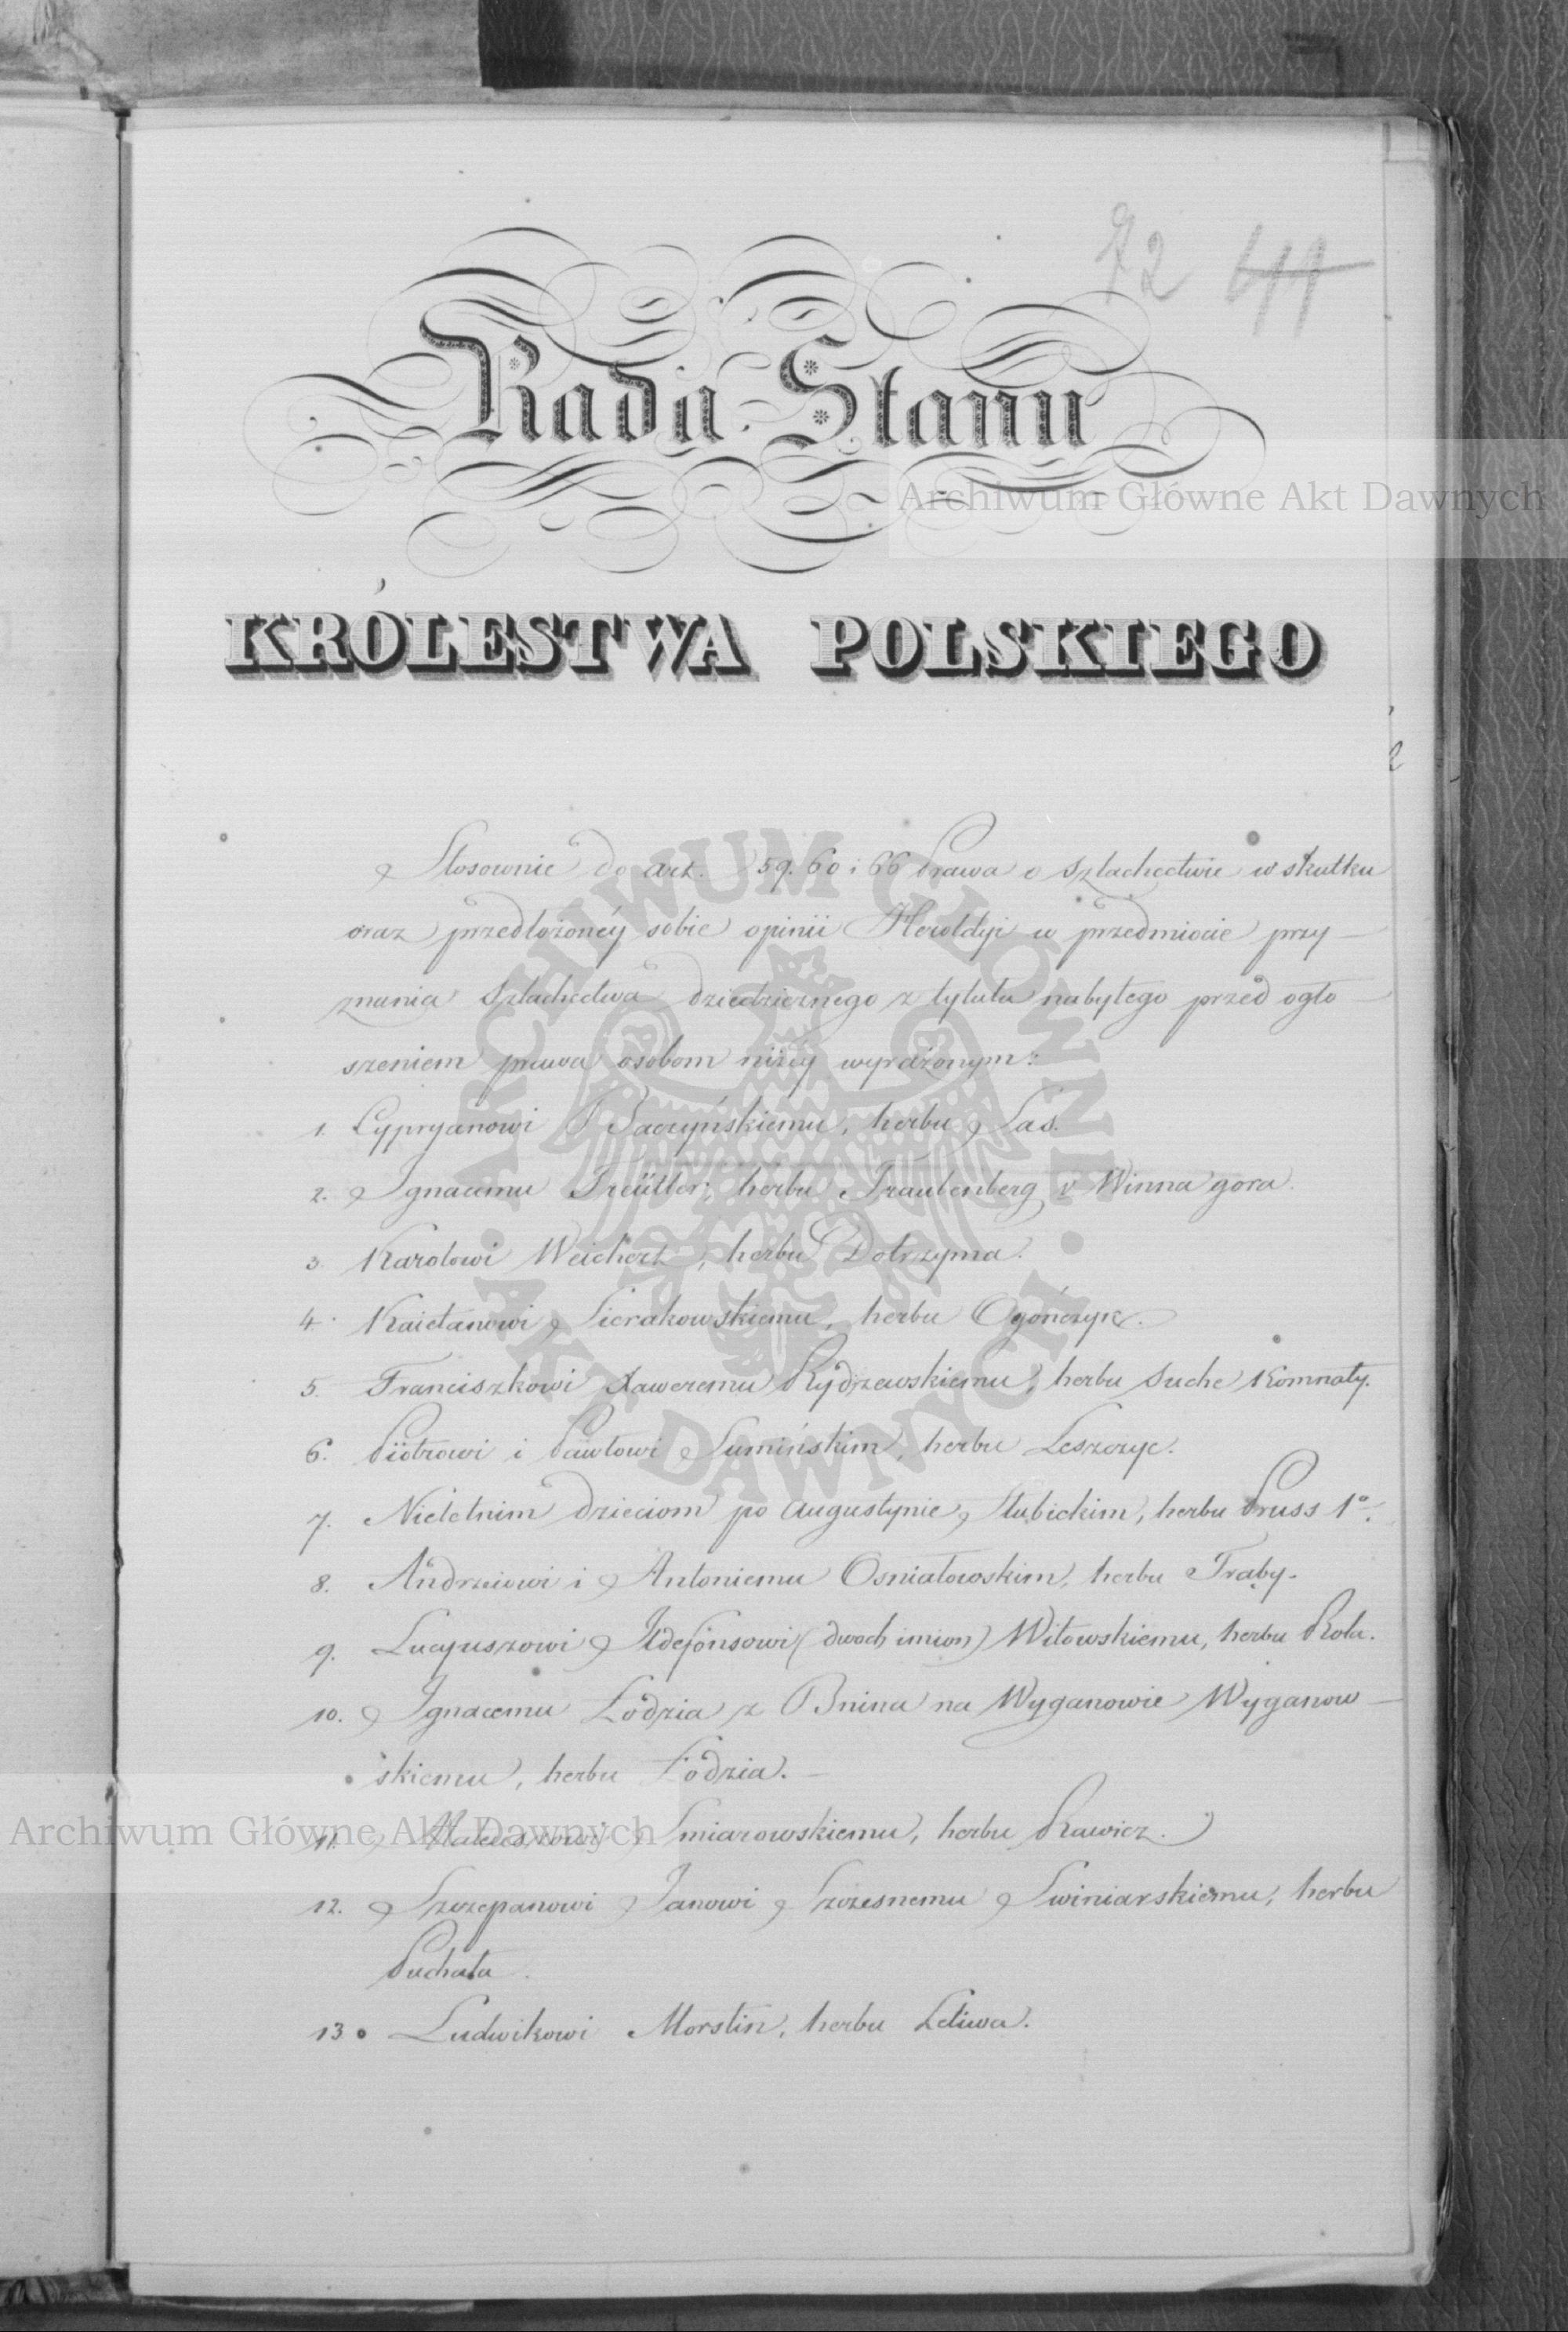 72 44
Rada Stanu
KRÓLESTWA POLSKIEGO
Stosownie do art. 59. 60 i 66 Prawa o szlachectwie w skutku
oraz przedłożonéy sobie opinii Heroldyi w przedmiocie przy-
znania szlachectwa dziedzicznego z tytułu nabytego przed ogło-
szeniem prawa osobom niżéy wyrażonym:
1. Cypryanowi Baczyńskiemu, herbu Sas.
2. Ignacemu Treütler, herbu Trautenberg v Winna gora.
3. Karolowi Weichert, herbu Dotrzyma.
4. Kaietanowi Sierakowskiemu, herbu Ogończyk.
5. Franciszkowi Xaweremu Rydzewskiemu, herbu Suche Komnaty.
6. Piotrowi i Pawłowi Sumińskim, herbu Leszczyc.
7. Nieletnim dzieciom po Augustynie Słubickim, herbu Pruss 1º.
8. Andrzeiowi i Antoniemu Osniałowskim, herbu Traby.
9. Lucyuszowi Ildefonsowi (dwoch imion) Witowskiemu, herbu Rola.
10. Ignacemu Łodzia z Bnina na Wyganowie Wyganow-
skiemu, herbu Łodzia.
11. Mateuszowi Smiarowskiemu, herbu Rawicz.
12. Szczepanowi Janowi Szczesnemu Swiniarskiemu, herbu
Puchała.
13. Ludwikowi Morstin, herbu Leliwa.
Archiwum Główne Akt Dawnych
Archiwum Główne Akt Dawnych
ARCHIWUM GŁÓWNE
AKT DAWNYCH